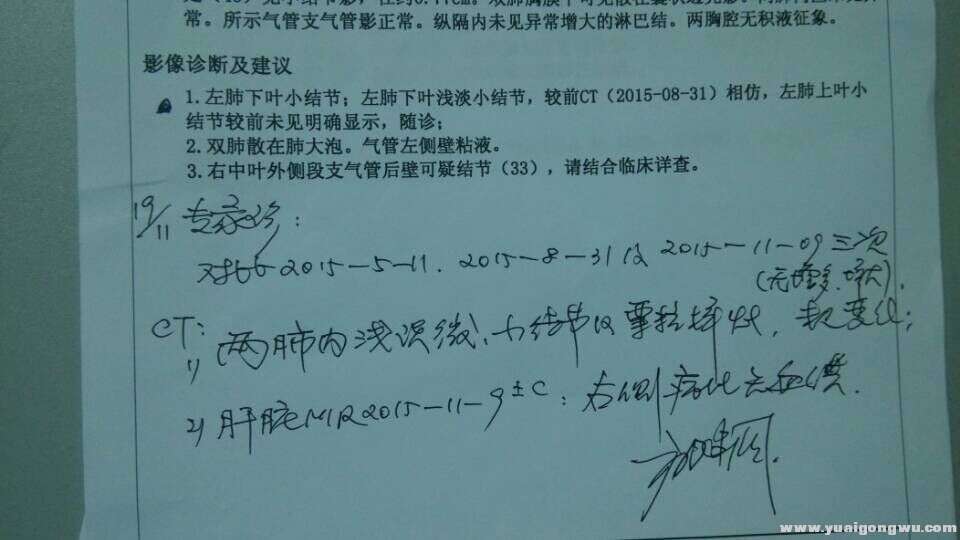 常。所示气管支气管影正常。纵隔内未见异常增大的淋巴结。两胸腔无积液征象。
影像诊断及建议
1.左肺下叶小结节；左肺下叶浅淡小结节，较前CT（2015-08-31）相仿，左肺上叶小
结节较前未见明确显示，随诊；
2.双肺散在肺大泡。气管左侧壁粘液。
3.右中叶外侧段支气管后壁可疑结节（33），请结合临床详查。
19/11 专家会诊：
对比 2015-5-11. 2015-8-31及 2015-11-09三次
(无增多.增大).
CT:
1) 两肺内浅淡微、小结节及粟粒样灶,
2) 肝脏MR 2015-11-9 ±C: 右侧病灶
www.yuaigongwu.com